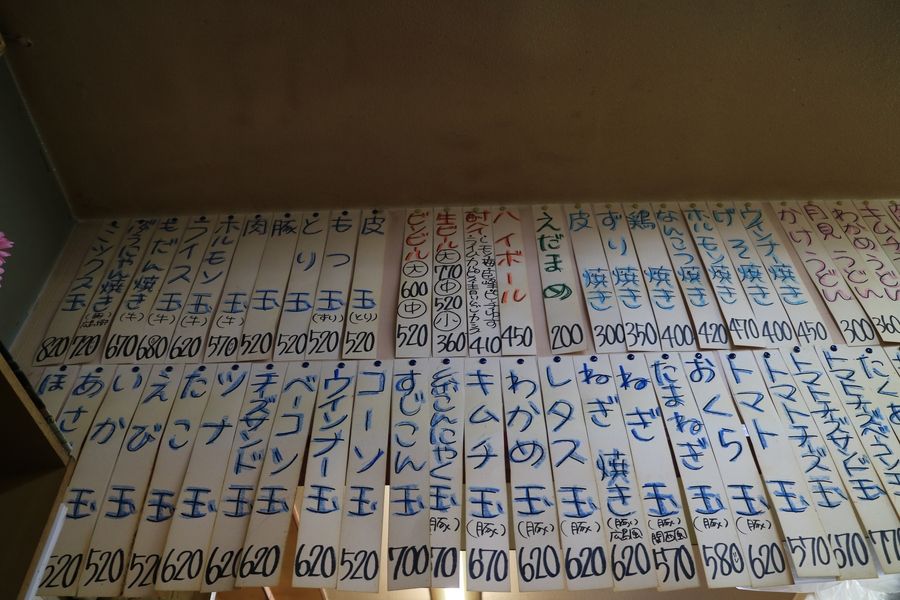 ミックス玉 820
ぶったまん焼き 720
もだん焼き (牛) 670
ライス玉 (牛) 620
ホルモン玉 (牛) 570
肉玉 520
豚玉 520
とり玉 520
もつ玉
皮玉 (とり) 520
ビンビール 大 600 中 520
生ビール 大 770 中 520 小 360
酎ハイ 410
ハイボール 450
えだまめ 200
皮焼き 300
ずり焼き 350
鶏焼き 400
なんこつ焼き 420
ホルモン焼き 470
げそ焼き 400
ウィンナー焼き 450
かけうどん 300
月見うどん 360
わかめうどん
キムチうどん
ほ
あさ玉 520
いか玉 520
えび玉 520
たこ玉 620
ツナ玉 620
チーズサンド玉 620
ベーコン玉
ウインナー玉 620
コーン玉 520
すじこん玉 700
糸こんにゃく玉 (豚入)
キムチ玉 (豚入) 670
わかめ玉 (豚入) 620
レタス玉 (豚入) 620
ねぎ焼き (豚入) 広島風 620
ねぎ玉 (豚入) 関西風 570
たまねぎ玉 (豚入) 580
おくら玉 (豚入) 620
トマト玉 570
トマトチーズ玉 670
トマトチーズサンド玉 770